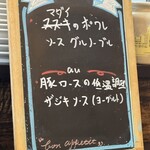 マダイ
ススキのポワレ
ソース グルノーブル
au
豚ロースの低温調
ザジキソース(ヨーグルト)
Bon appétit